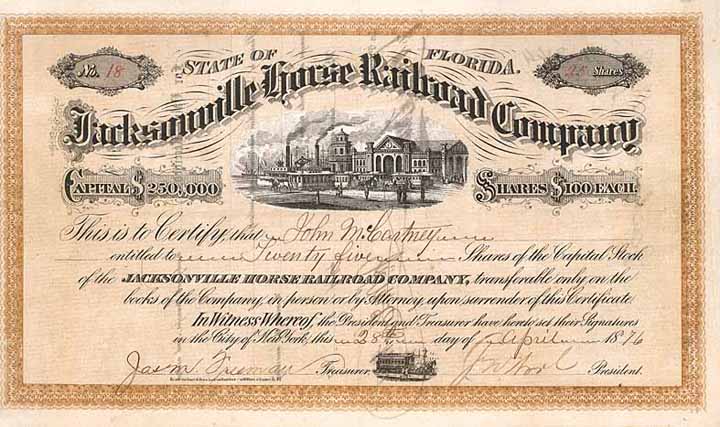 No. 18
STATE OF FLORIDA.
25 Shares
Jacksonville Horse Railroad Company
CAPITAL $250,000
SHARES $100 EACH.
This is to Certify, that John McCartney
entitled to Twenty five Shares of the Capital Stock
of the JACKSONVILLE HORSE RAILROAD COMPANY, transferable only on the
books of the Company, in person or by Attorney, upon surrender of this Certificate.
In Witness Whereof, the President and Treasurer have hereto set their Signatures
in the City of New York, this 28th day of April 1876
Jas. M. Freeman Treasurer President.